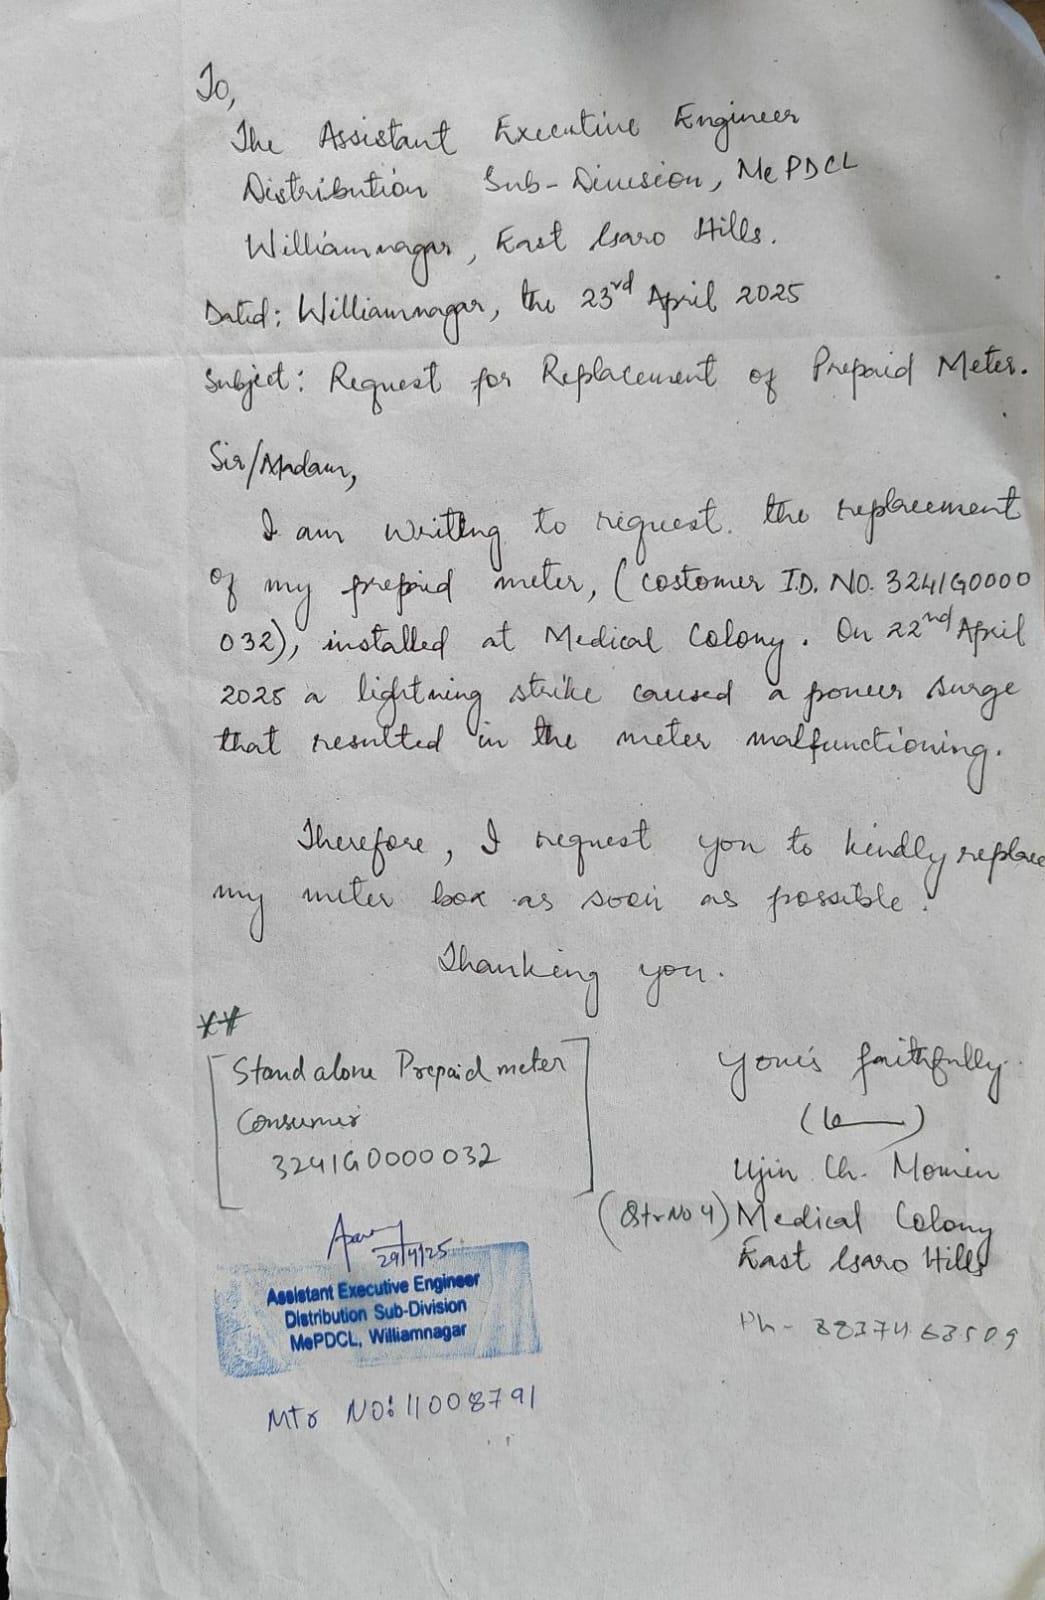 To,
The Assistant Executive Engineer
Distribution Sub-Division, MePDCL
Williamnagar, East Garo Hills.
Dated: Williamnagar, the 23rd April 2025
Subject: Request for Replacement of Prepaid Meter.
Sir/Madam,
I am writing to request. the replacement
of my prepaid meter, (costomer I.D. NO. 3241G0000
032), installed at Medical Colony. On 22nd April
2025 a lightning strike caused a power surge
that resulted in the meter malfunctioning.
Therefore, I request you to kindly replace
my meter box as soon as possible.
Thanking you.
**
Stand alone Prepaid meter
Consumer
3241G0000032
Yours faithfully
Ujin Ch. Momin
(Qtr No 4) Medical Colony
East Garo Hills
Ph-
29/4/25
Assistant Executive Engineer
Distribution Sub-Division
MePDCL, Williamnagar
Mtr NO: 11008791